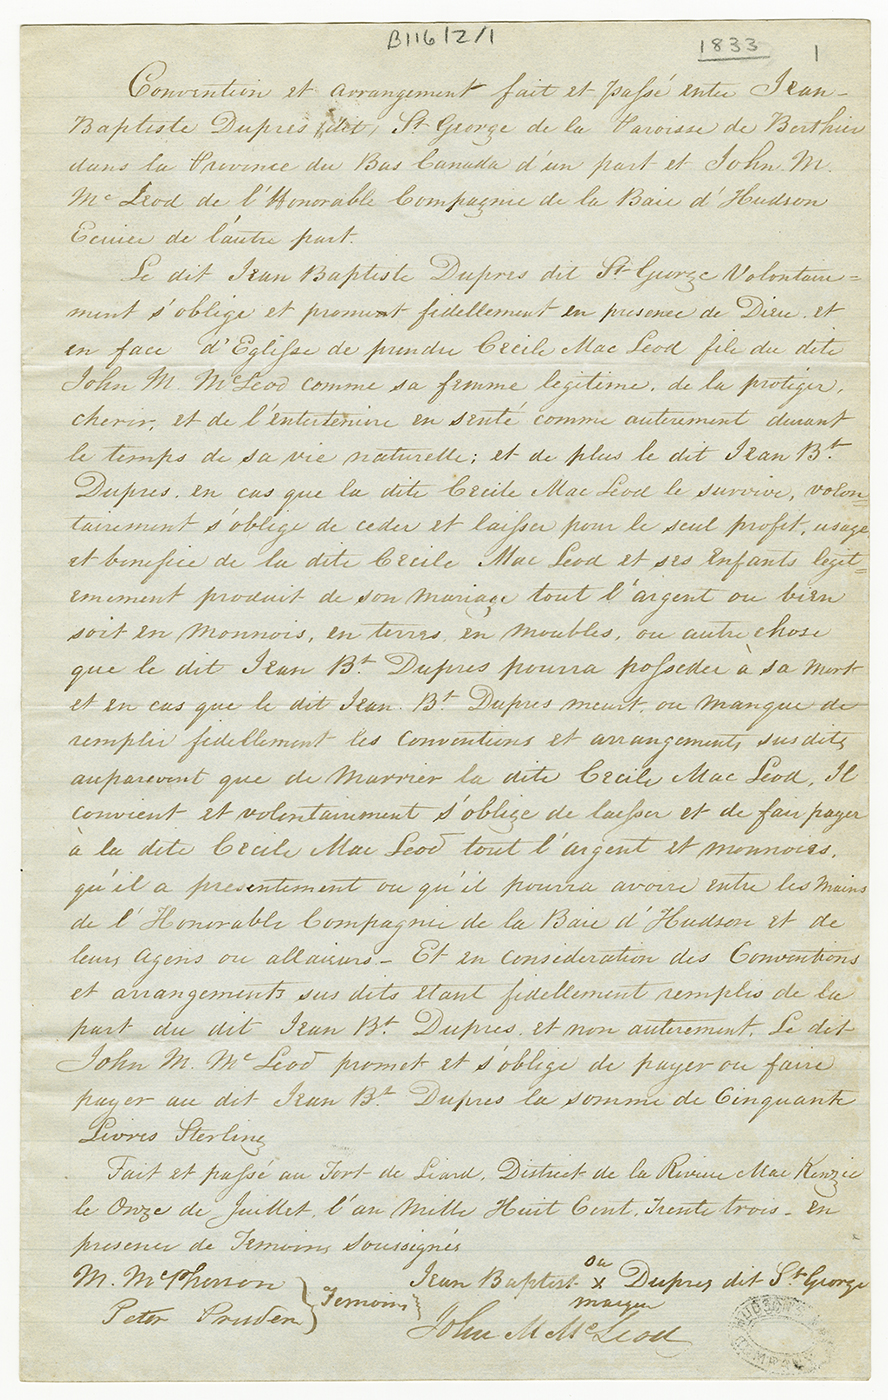 B116/Z/1
1833
1
Convention et arrangement fait et passé entre Jean-
Baptiste Dupres dit, St George de la Paroisse de Berthier
dans la Province du Bas Canada d'un part et John M.
Mc Leod de l'Honorable Compagnie de la Baie d'Hudson
Ecuier de l'autre part.
Le dit Jean Baptiste Dupres dit St George Volontaire=
ment s'oblige et proment fidellement en presence de Dieu et
en face d'Eglisse de prendre Cecile Mac Leod file du dite
John M. McLeod comme sa femme legitime, de la protiger,
cherir, et de l'entertenire en senté comme auterement durant
le temps de sa vie naturelle; et de plus le dit Jean Bt.
Dupres, en cas que la dite Cecile Mac Leod le survive, volon=
tairement s'oblige de ceder et laisser pour le seul profit, usage
et benefice de la dite Cecile Mac Leod et ses Enfants legit=
emement produit de son Mariage tout l'argent ou bien
soit en Monnois, en terres, en Moubles, ou autre chose
que le dit Jean Bt. Dupres pourra posseder à sa Mort
et en cas que le dit Jean Bt. Dupres meurt, ou Manque de
remplir fidellement les Conventions et arrangements susdits
auparevent que de Marrier la dite Cecile Mac Leod, Il
convient et volontairement s'oblige de laisser et de fair payer
à la dite Cecile Mac Leod tout l'argent et Monnoies,
qu'il a presentement ou qu'il pourra avoire entre les Mains
de l'Honorable Compagnie de la Baie d'Hudson et de
leurs Agens ou allaieurs - Et en consideration des Conventions
et arrangements sus dits etant fidellement remplis de la
part du dit Jean Bt. Dupres, et non auterement, Le dit
John M. Mc Leod promet et s'oblige de payer ou faire
payer au dit Jean Bt. Dupres la somme de Cinquante
Livres Sterling
Fait et passé au Fort de Liard, District de la Riviere Mac Kenzie
le Onze de Juillet, l'an Mille Huit Cent, Trente trois - en
presence de Temoins soussignés
M. McPherson
Peter Pruden
Temoins
Jean Baptist x Dupres dit St George
sa
marque
John M McLeod
HUDSON'S BAY COMPANY